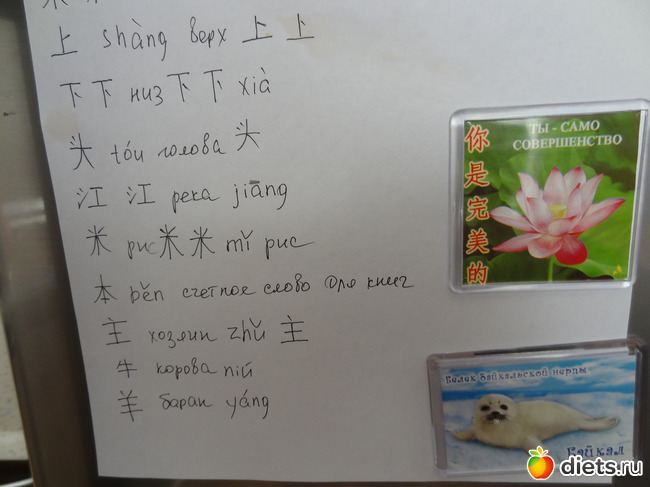 上 shàng верх 上 上
下 下 низ 下 下 xià
头 tóu голова 头
江 江 река jiāng
米 рис 米 米 mǐ рис
本 běn счетное слово для книг
主 хозяин zhǔ 主
牛 корова niú
羊 баран yáng
ТЫ - САМО
СОВЕРШЕНСТВО
你是完美的
Белек байкальской нерпы
Байкал
diets.ru